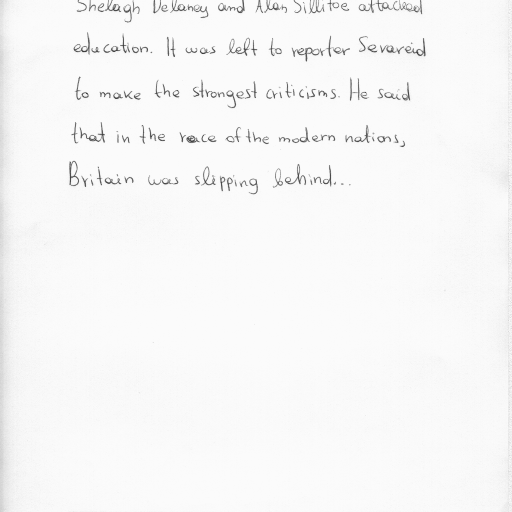 Shelagh Delaney and Alan Sillitoe attacked
education. It was left to reporter Severeid
to make the strongest criticisms. He said
that in the race of the modern nations,
Britain was slipping behind...